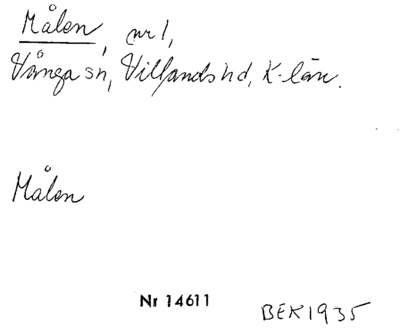 Målen, nr 1,
Vånga sn, Villands hd, K-län.
Målen
Nr 14611
BEK1935